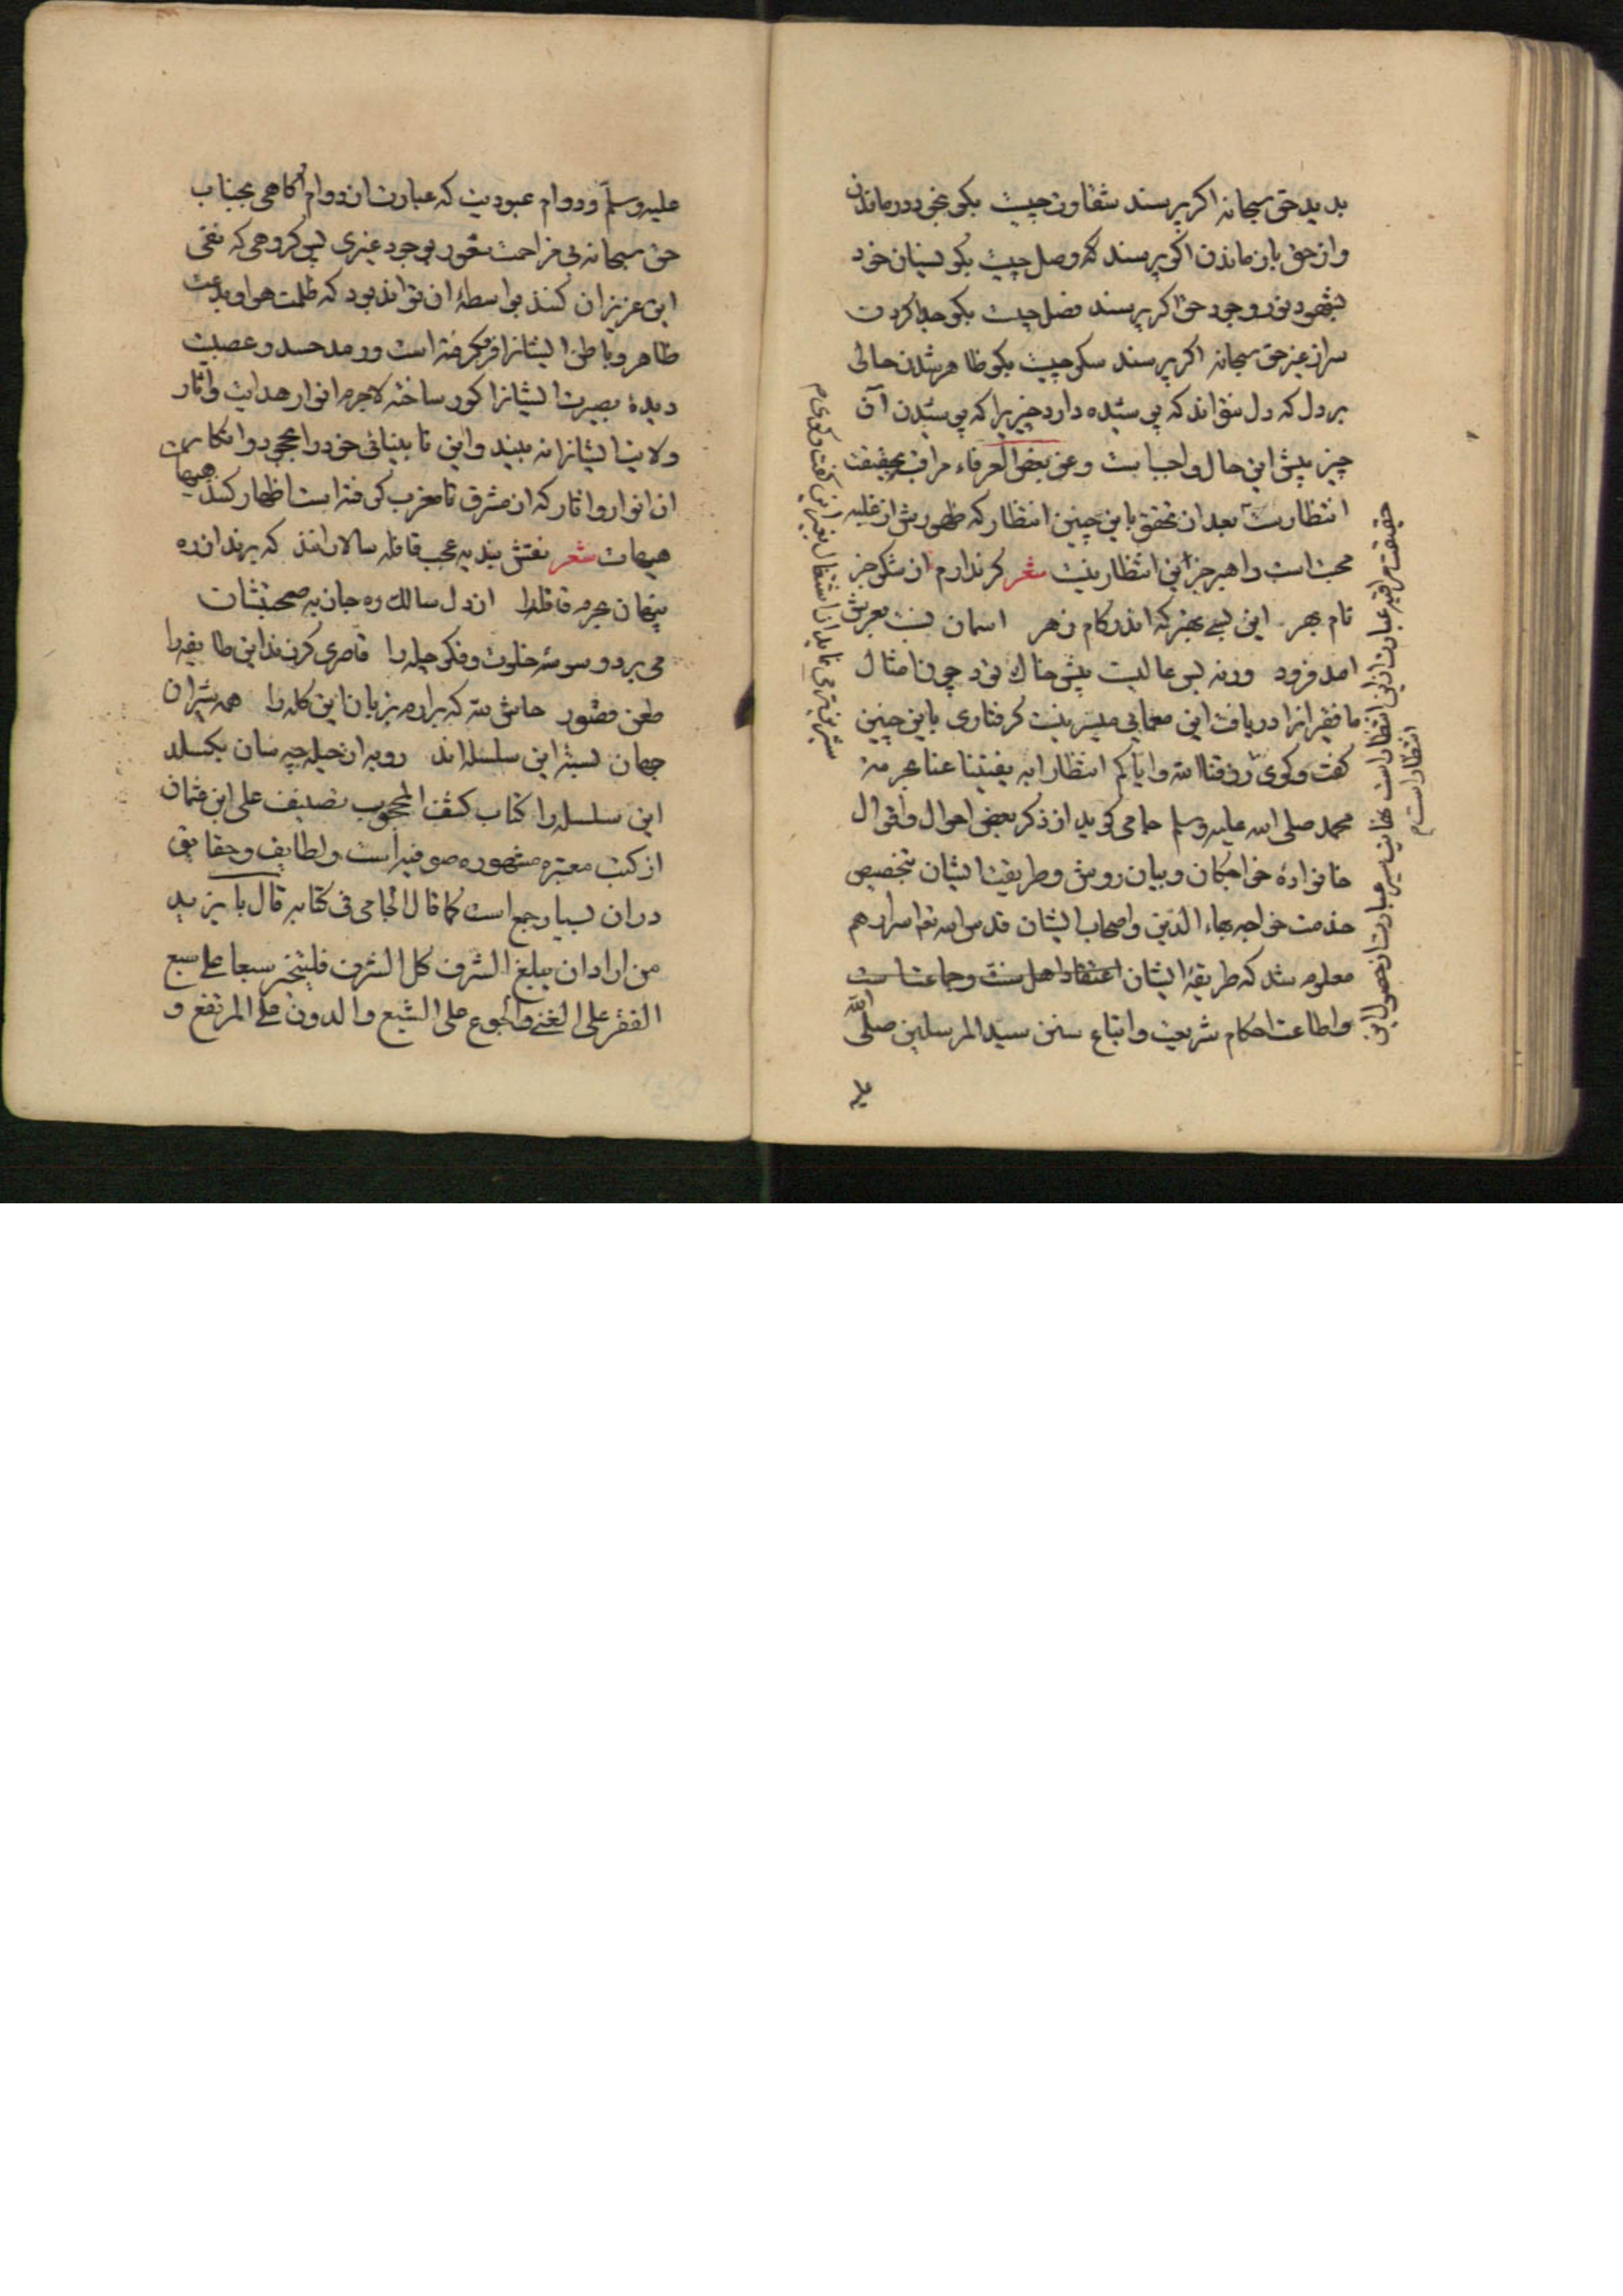 بدید حق سبحانه اکر پرسند شقاوت چیست بکو بخود درماندن
واز حق باز ماندن اکر پرسند که وصل چیست بکو نسیان خود
بشهود نور وجود حق اکر پرسند فصل چیست بکو جدا کردن
سر از غیر حق سبحانه اکر پرسند سکر چیست بکو ظاهر شدن حالی
بر دل که دل نتواند که پوشیده دارد چیزیرا که پوشیدن آن
چیز پیش این حال واجب است وعن بعض العرفاء مراقبه بحقیقت
انتظارست بعد از تحقق باین چنین انتظار که ظهورش از غلبه
محبت است راهبر جز این انتظار نیست شعر کر ندارم از شکر جز
نام بهر این بسی بهتر که اندر کام زهر اسمان نسبت بعرش
امد فرود ورنه بس عالیست پیش خاک تود چون امثال
ما فقیرانرا دریافت این معانی میسر نیست کرفتاری باین چنین
کفت وکوی رزقنا الله وایاکم انتظارا به یغنینا عنا بحرمة
محمد صلی الله علیه وسلم جامی کوید از ذکر بعض احوال واقوال
خانوادۀ خواجکان وبیان روش وطریقت ایشان بتخصیص
خدمت خواجه بهاء الدین واصحاب ایشان قدس الله تعالی اسرارهم
معلوم شد که طریقۀ ایشان اعتقاد اهل سنت وجماعتاست
واطاعت احکام شریعت واتباع سنن سید المرسلین صلی الله
علیه
حقیقت مراقبه عبارت ازین انتظارست نهایت سیر عبارت از حصول این
انتظار است
علیه وسلم ودوام عبودیت که عبارت از دوام آکاهی بجناب
حق سبحانه بی مزاحمت شعور بوجود غیری پس کروهی که نفی
این عزیزان کنند بواسطۀ ان تواند بود که ظلمت هوا وبدعت
ظاهر وباطن ایشانرا فرو کرفته است ورمد حسد وعصبیت
دیدۀ بصیرت ایشانرا کور ساخته لاجرم انوار هدایت وآثار
ولایت ایشانرا نه بینند واین نابینائی خود را بجحود وانکار
ان انوار واثار که از مشرق تا مغرب کرفته است اظهار کنند هیهات
هیهات شعر نقش بندیه عجب قافله سالارانند که برند از ره
پنهان بحرم قافله را از دل سالک ره جاذبه صحبتشان
می برد وسوسۀ خلوت وفکر چله را قاصری کر زند این طایفه را
طعن قصور حاش لله که برارم بزبان این کله را همه شیران
جهان بستۀ این سلسله اند روبه از حیله چه سان بکسلد
این سلسله را کتاب کشف المحجوب تصنیف علی ابن عثمان
از کتب معتبره مشهوره صوفیه است ولطایف وحقایق
دران بسیار جمع است کما قال الجامی فی کتابه قال بایزید
من اراد ان یبلغ الشرف کل الشرف فلیتخیر سبعا علی سبع
الفقر علی الغنی والجوع علی الشبع والدون علی المرتفع و